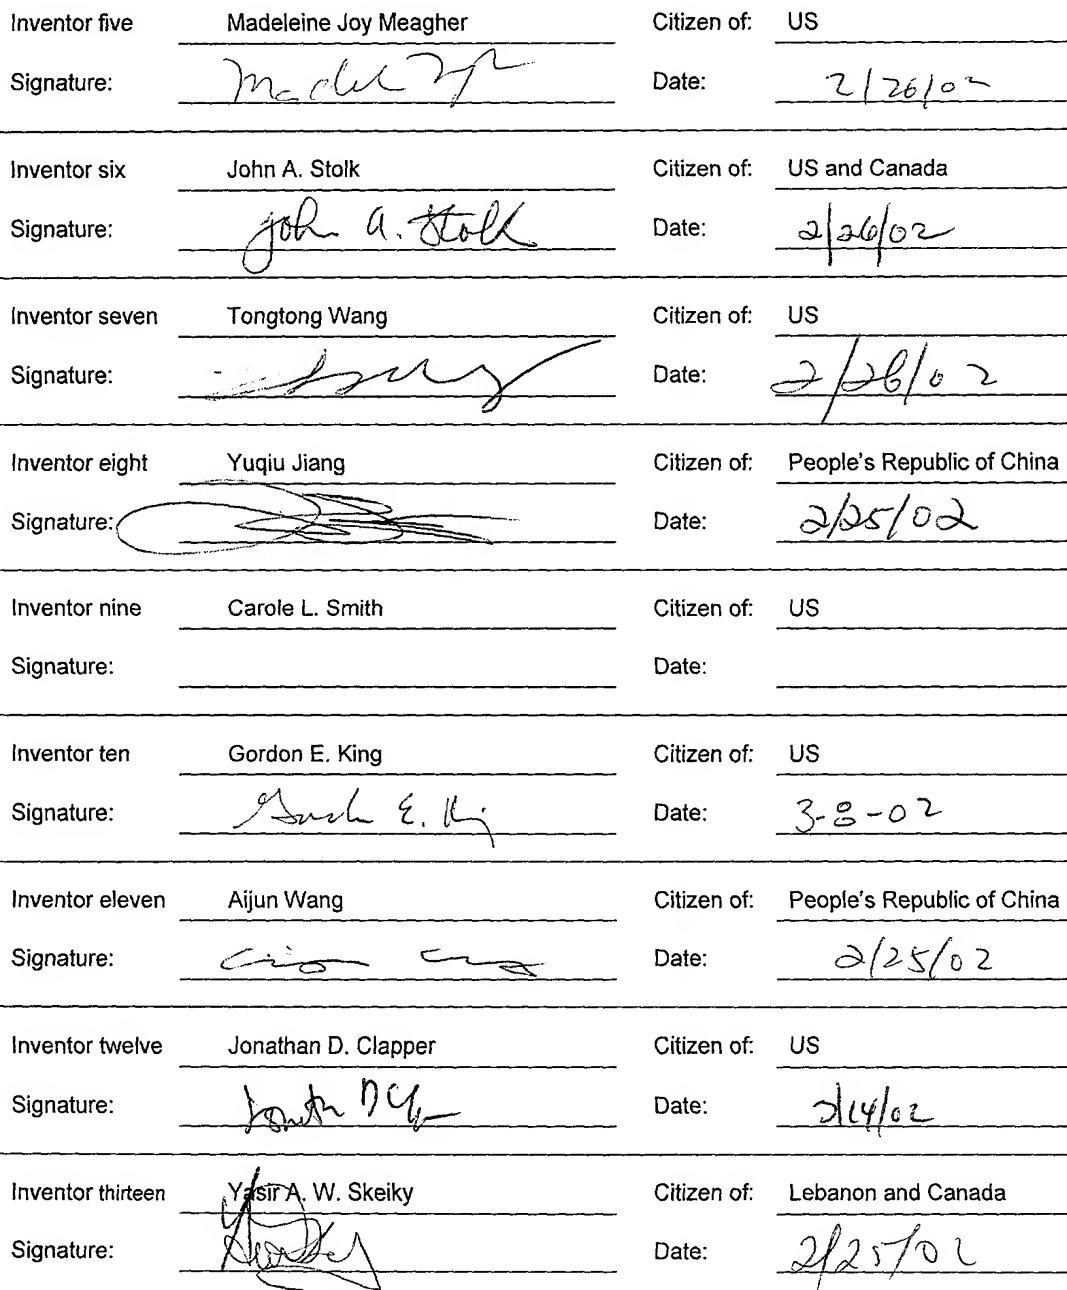 Inventor five Madeleine Joy Meagher Citizen of: US
Signature: Date: 2/26/02
Inventor six John A. Stolk Citizen of: US and Canada
Signature: John A. Stolk Date: 2/26/02
Inventor seven Tongtong Wang Citizen of: US
Signature: Date: 2/26/02
Inventor eight Yuqiu Jiang Citizen of: People's Republic of China
Signature: Date: 2/25/02
Inventor nine Carole L. Smith Citizen of: US
Signature: Date:
Inventor ten Gordon E. King Citizen of: US
Signature: Date: 3-8-02
Inventor eleven Aijun Wang Citizen of: People's Republic of China
Signature: Date: 2/25/02
Inventor twelve Jonathan D. Clapper Citizen of: US
Signature: Date: 2/14/02
Inventor thirteen Yasir A. W. Skeiky Citizen of: Lebanon and Canada
Signature: Date: 2/25/02